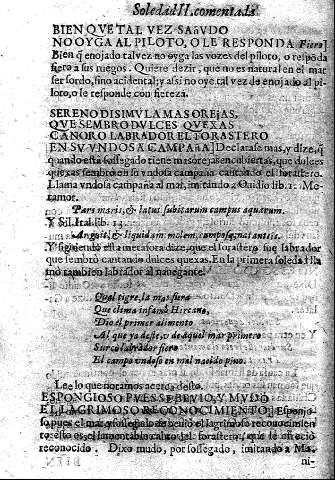 Soledad II. comentada
BIEN QVE TAL VEZ SAñVDO
NO OYGA AL PILOTO, O LE RESPONDA Fiero]
Bien q̃ enojado tal vez no oyga las vozes del piloto, o respõda
fiero a sus ruegos. Quiere dezir, que no es natural en el mar
ser sordo, sino accidental; y assi no oye tal vez de enojado al pi-
loto, o le responde con fiereza.
SERENO DISIMVLA MAS OREJAS,
QVE SEMBRO DVLCES QVEXAS
CANORO LABRADOR EL FORASTERO
EN SV VNDOSA CAMPAÑA] Declarase mas, y dize, q̃
quando esta sossegado tiene mas orejas encubiertas, que dulces
quexas sembrò en su vndosa campaña cantando el forastero.
Llama vndosa campaña al mar, imitando a Ouidio lib. 1. Me-
tamor.
Pars maris, & latus subitarum campus aquarum.
Y Sil. Ital. lib. 13.
& liquidam molem, camposq; natanteis.
Y siguiendo esta metafora dize, que el forastero fue labrador
que sembrò cantando dulces quexas. En la primera soledad lla
mò tambien labrador al nauegante.
Qual tigre, la mas fiera
Que clima infamò Hircano,
Dio el primer alimento
Al que ya deste, y de aquel mar primero
Surcò labrador fiero
El campo vndoso en mal nacido pino.
Lee lo que notamos acerca desto.
ESPONGIOSO PVES SE BEVIO, Y MVDO
EL LAGRIMOSO RECONOCIMIENTO] Esponjo-
so pues el mar, y sossegado se beuiò el lagrimoso reconocimien
to esto es, el lamentable canto del forastero, que se ofreciò
reconocido. Dixo mudo, por sossegado, imitando a Ma-
ni-